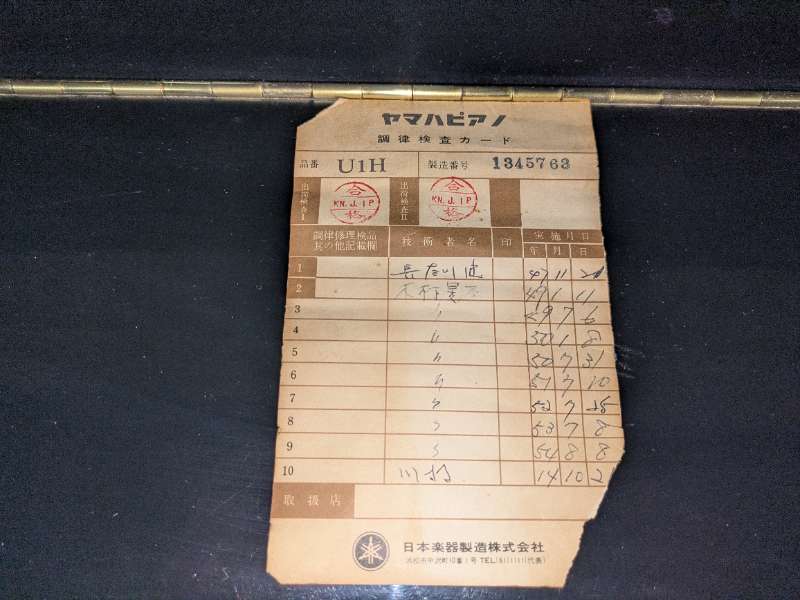 ヤマハピアノ
調律検査カード
品番 U1H 製造番号 1345763
出荷検査I 合格 KN.J.1P 出荷検査II 合格 KN.J.1P
調律修理検品其の他記載欄 技術者名 印 実施月日
年 月 日
1 47 11
2 49 1 11
3 49 7 6
4 〃 50 1 8
5 〃 50 7 31
6 〃 51 7 10
7 〃 52 7 25
8 〃 53 7 8
9 〃 54 8 8
10 川村 14 10 2
取扱店
日本楽器製造株式会社
浜松市中沢町10番1号 TEL(61)1111(代表)